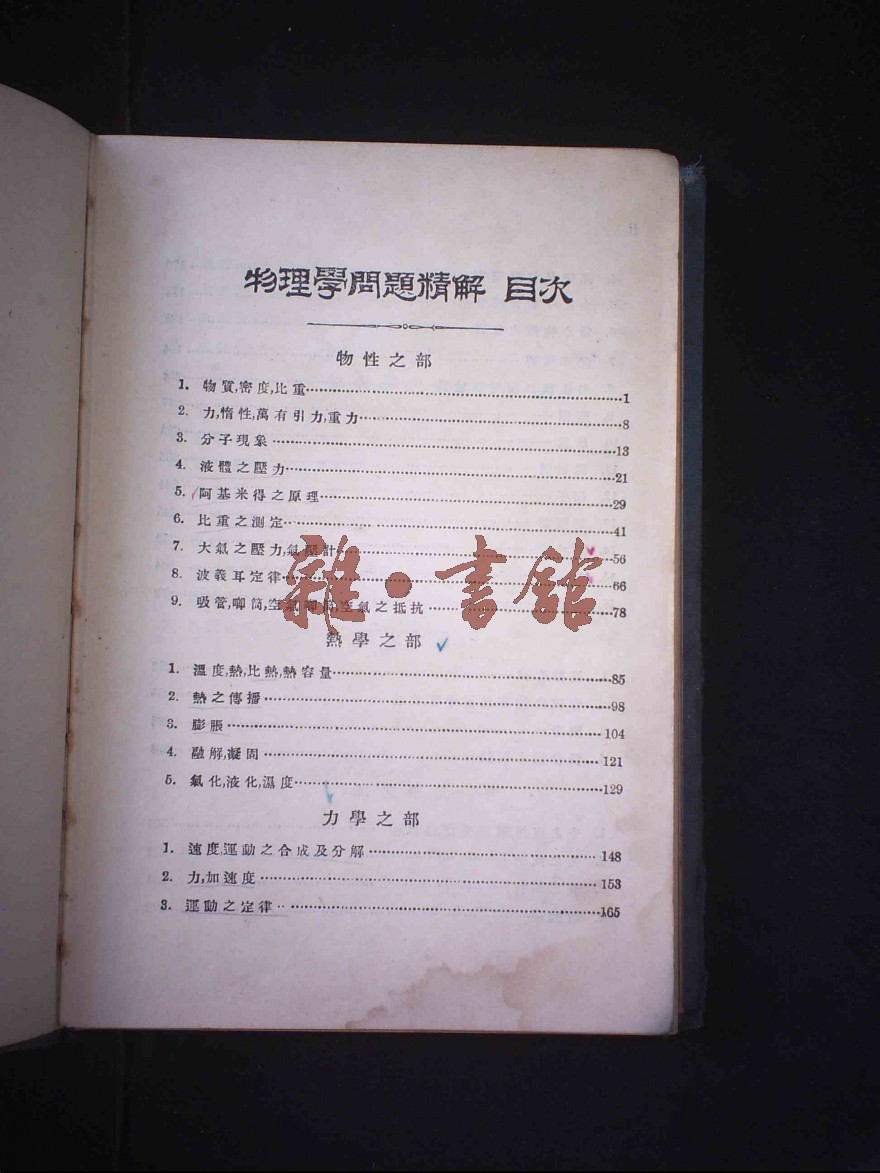 物理學問題精解 目次
物性之部
1. 物質,密度,比重……1
2. 力,惰性,萬有引力,重力……8
3. 分子現象……13
4. 液體之壓力……21
5. 阿基米得之原理……29
6. 比重之測定……41
7. 大氣之壓力,氣壓計……56
8. 波義耳定律……66
9. 吸管,喞筒,空氣喞筒,空氣之抵抗……78
雜·書館
熱學之部
1. 溫度,熱,比熱,熱容量……85
2. 熱之傳播……98
3. 膨脹……104
4. 融解,凝固……121
5. 氣化,液化,濕度……129
力學之部
1. 速度,運動之合成及分解……148
2. 力,加速度……153
3. 運動之定律……165